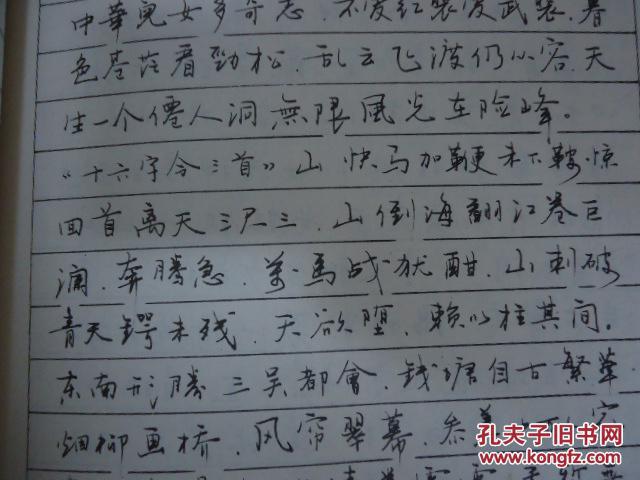 中華兒女多奇志.不爱红装爱武装.暮
色苍茫看劲松.乱云飞渡仍从容.天
生一个僊人洞無限風光在险峰。
《十六字令三首》山 快马加鞭未下鞍.惊
回首离天三尺三.山倒海翻江卷巨
澜.奔腾急.萬馬战犹酣.山刺破
青天锷未残.天欲堕.赖以柱其间。
东南形勝三吴都會.钱塘自古繁華.
烟柳画桥.风帘翠幕.参差
孔夫子旧书网
www.kongfz.com